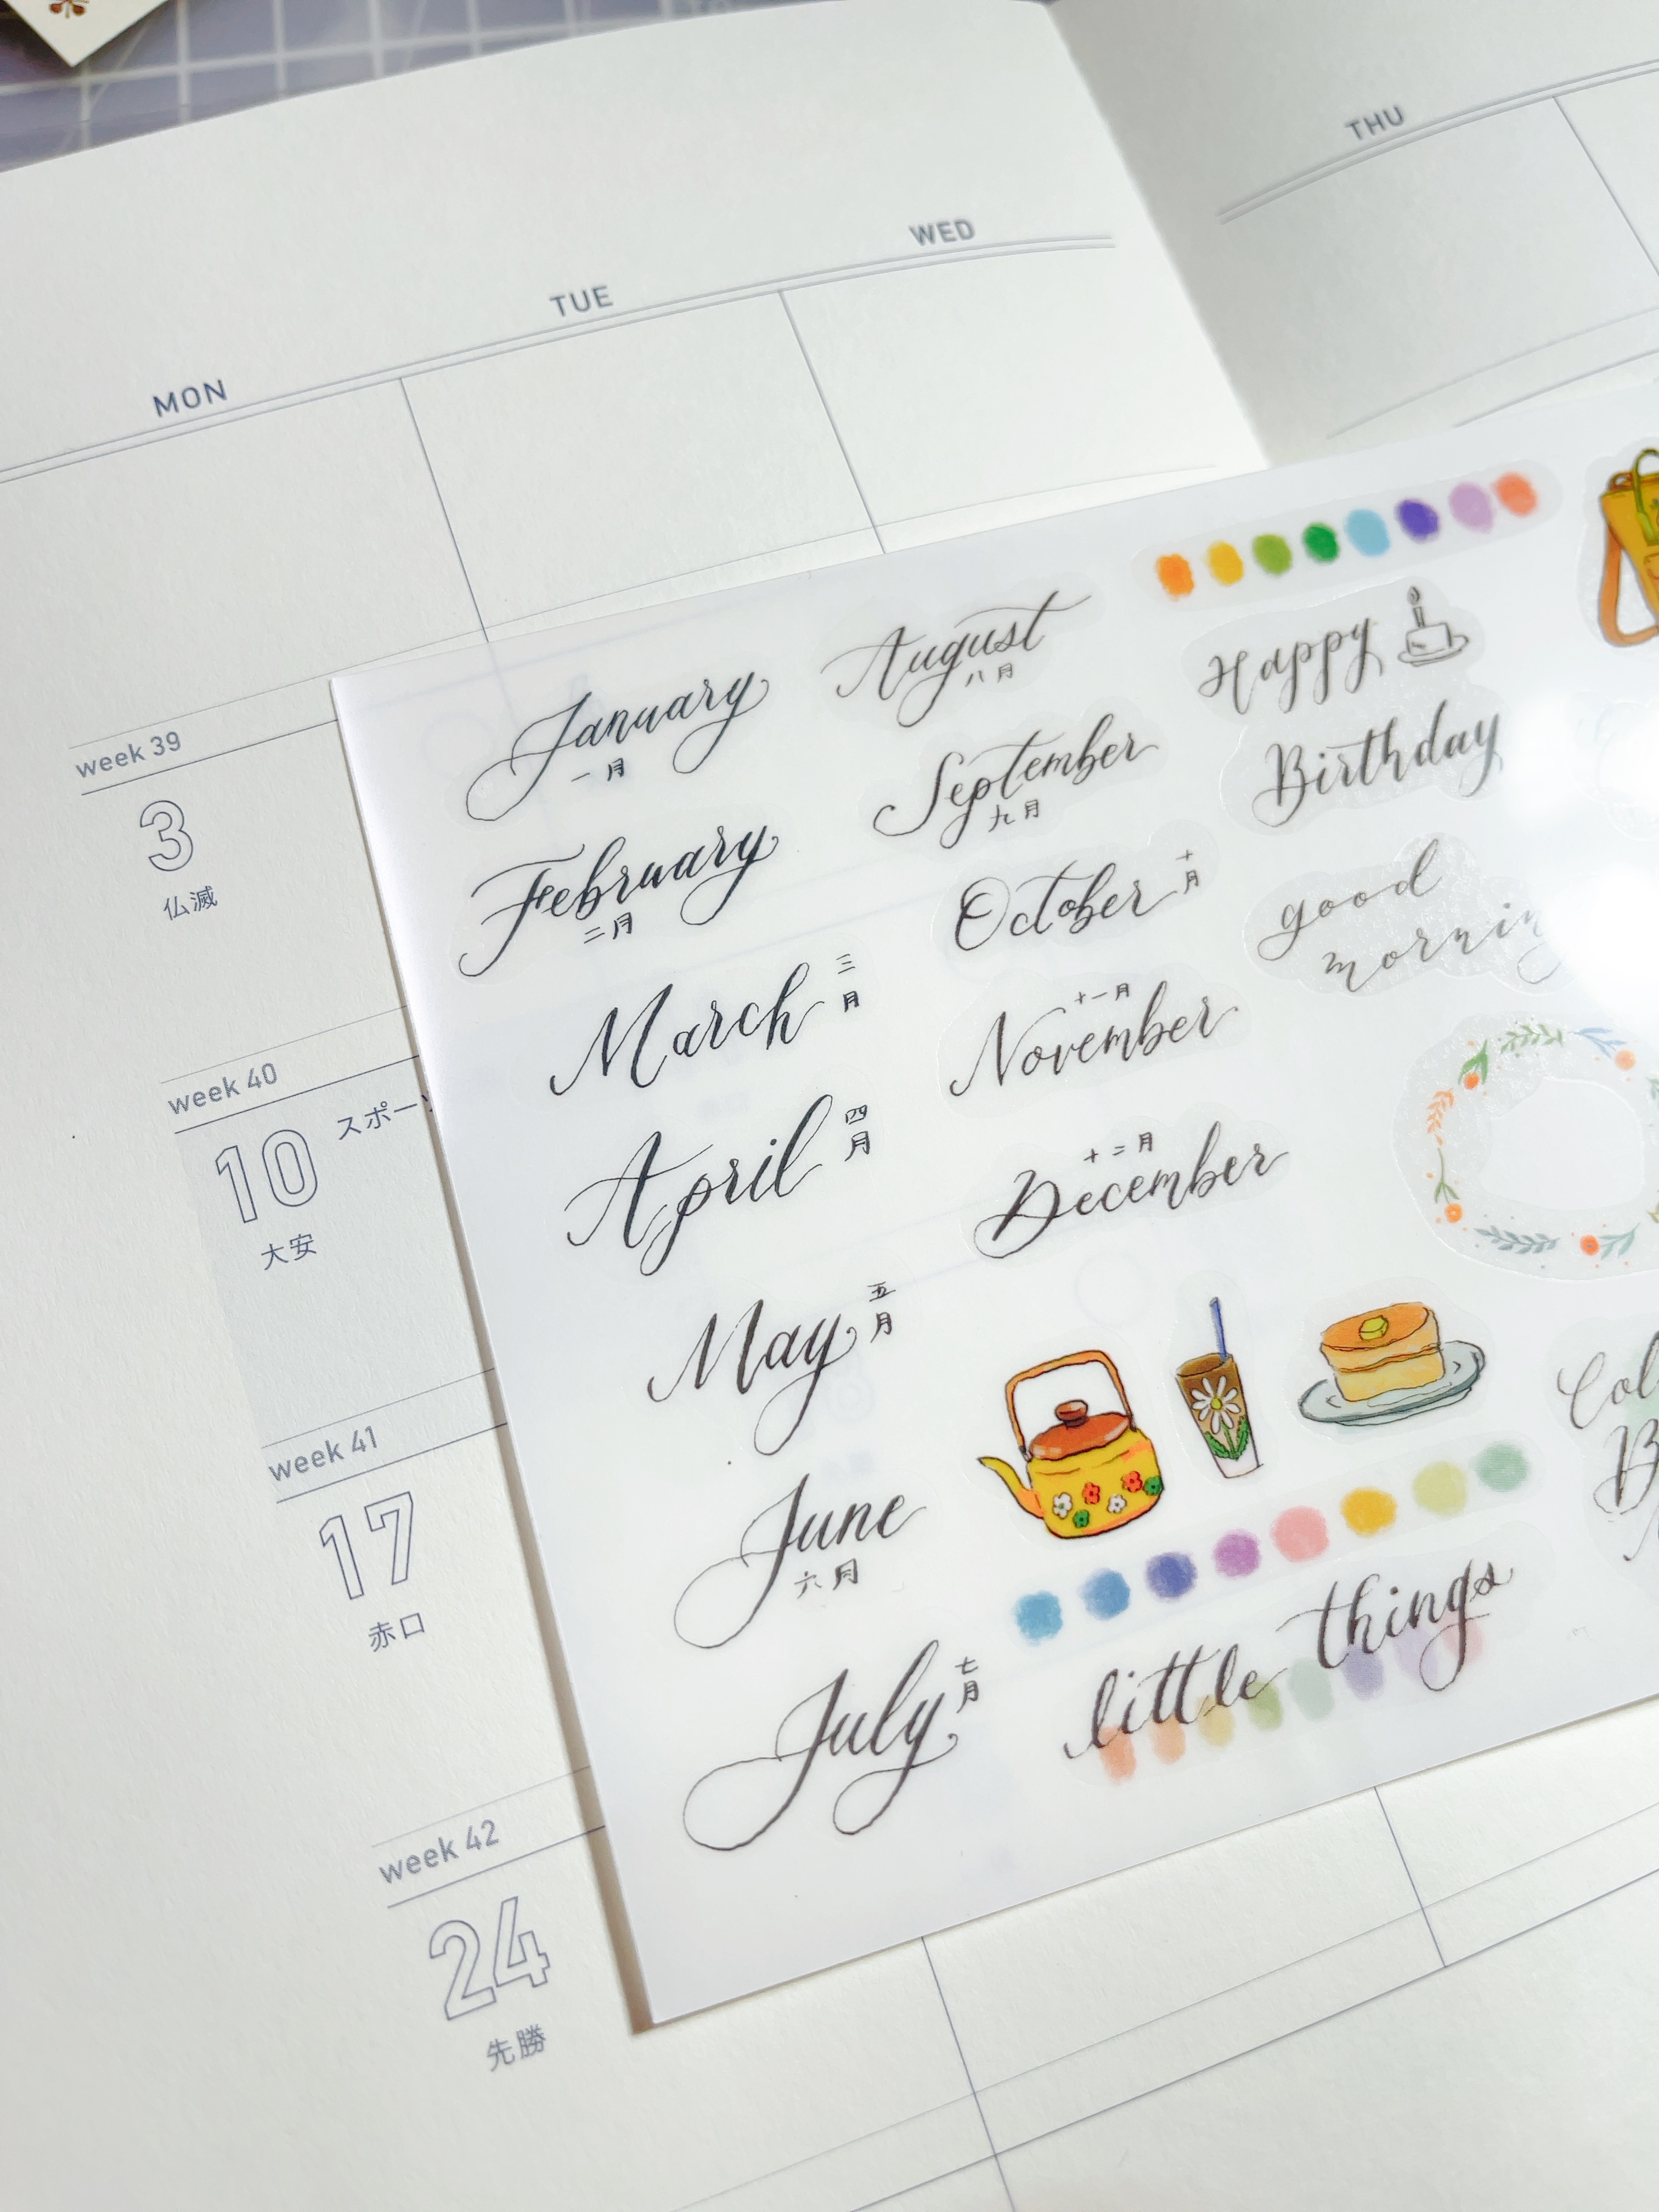 MON
TUE
WED
THU
week 39
3
仏滅
week 40
10
スポー
大安
week 41
17
赤口
week 42
24
先勝
January
一月
February
二月
March
三月
April
四月
May
五月
June
六月
July
七月
August
八月
September
九月
October
十月
November
十一月
December
十二月
Happy
Birthday
good
mornin
little things
Col
B